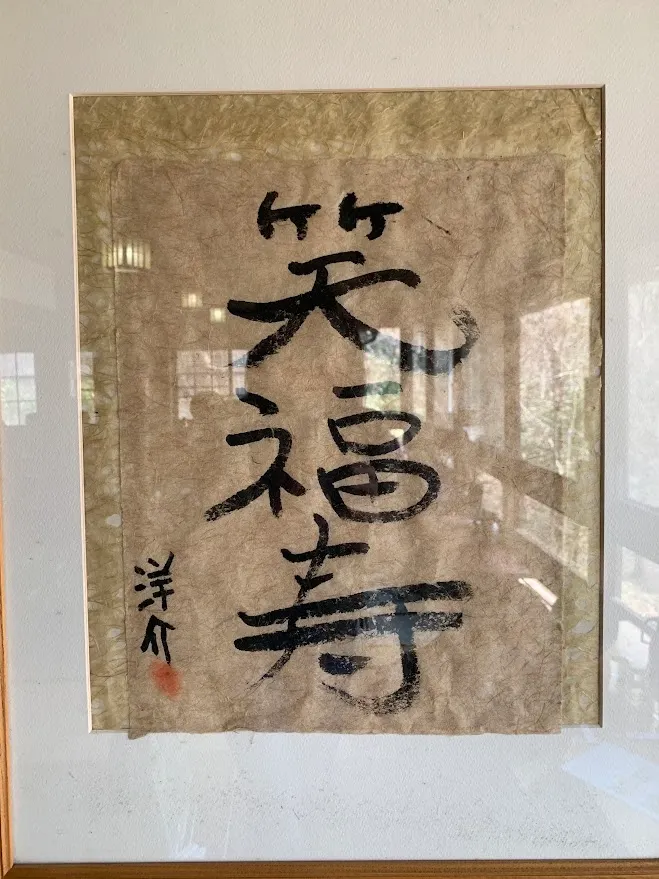 笑福寿
洋介